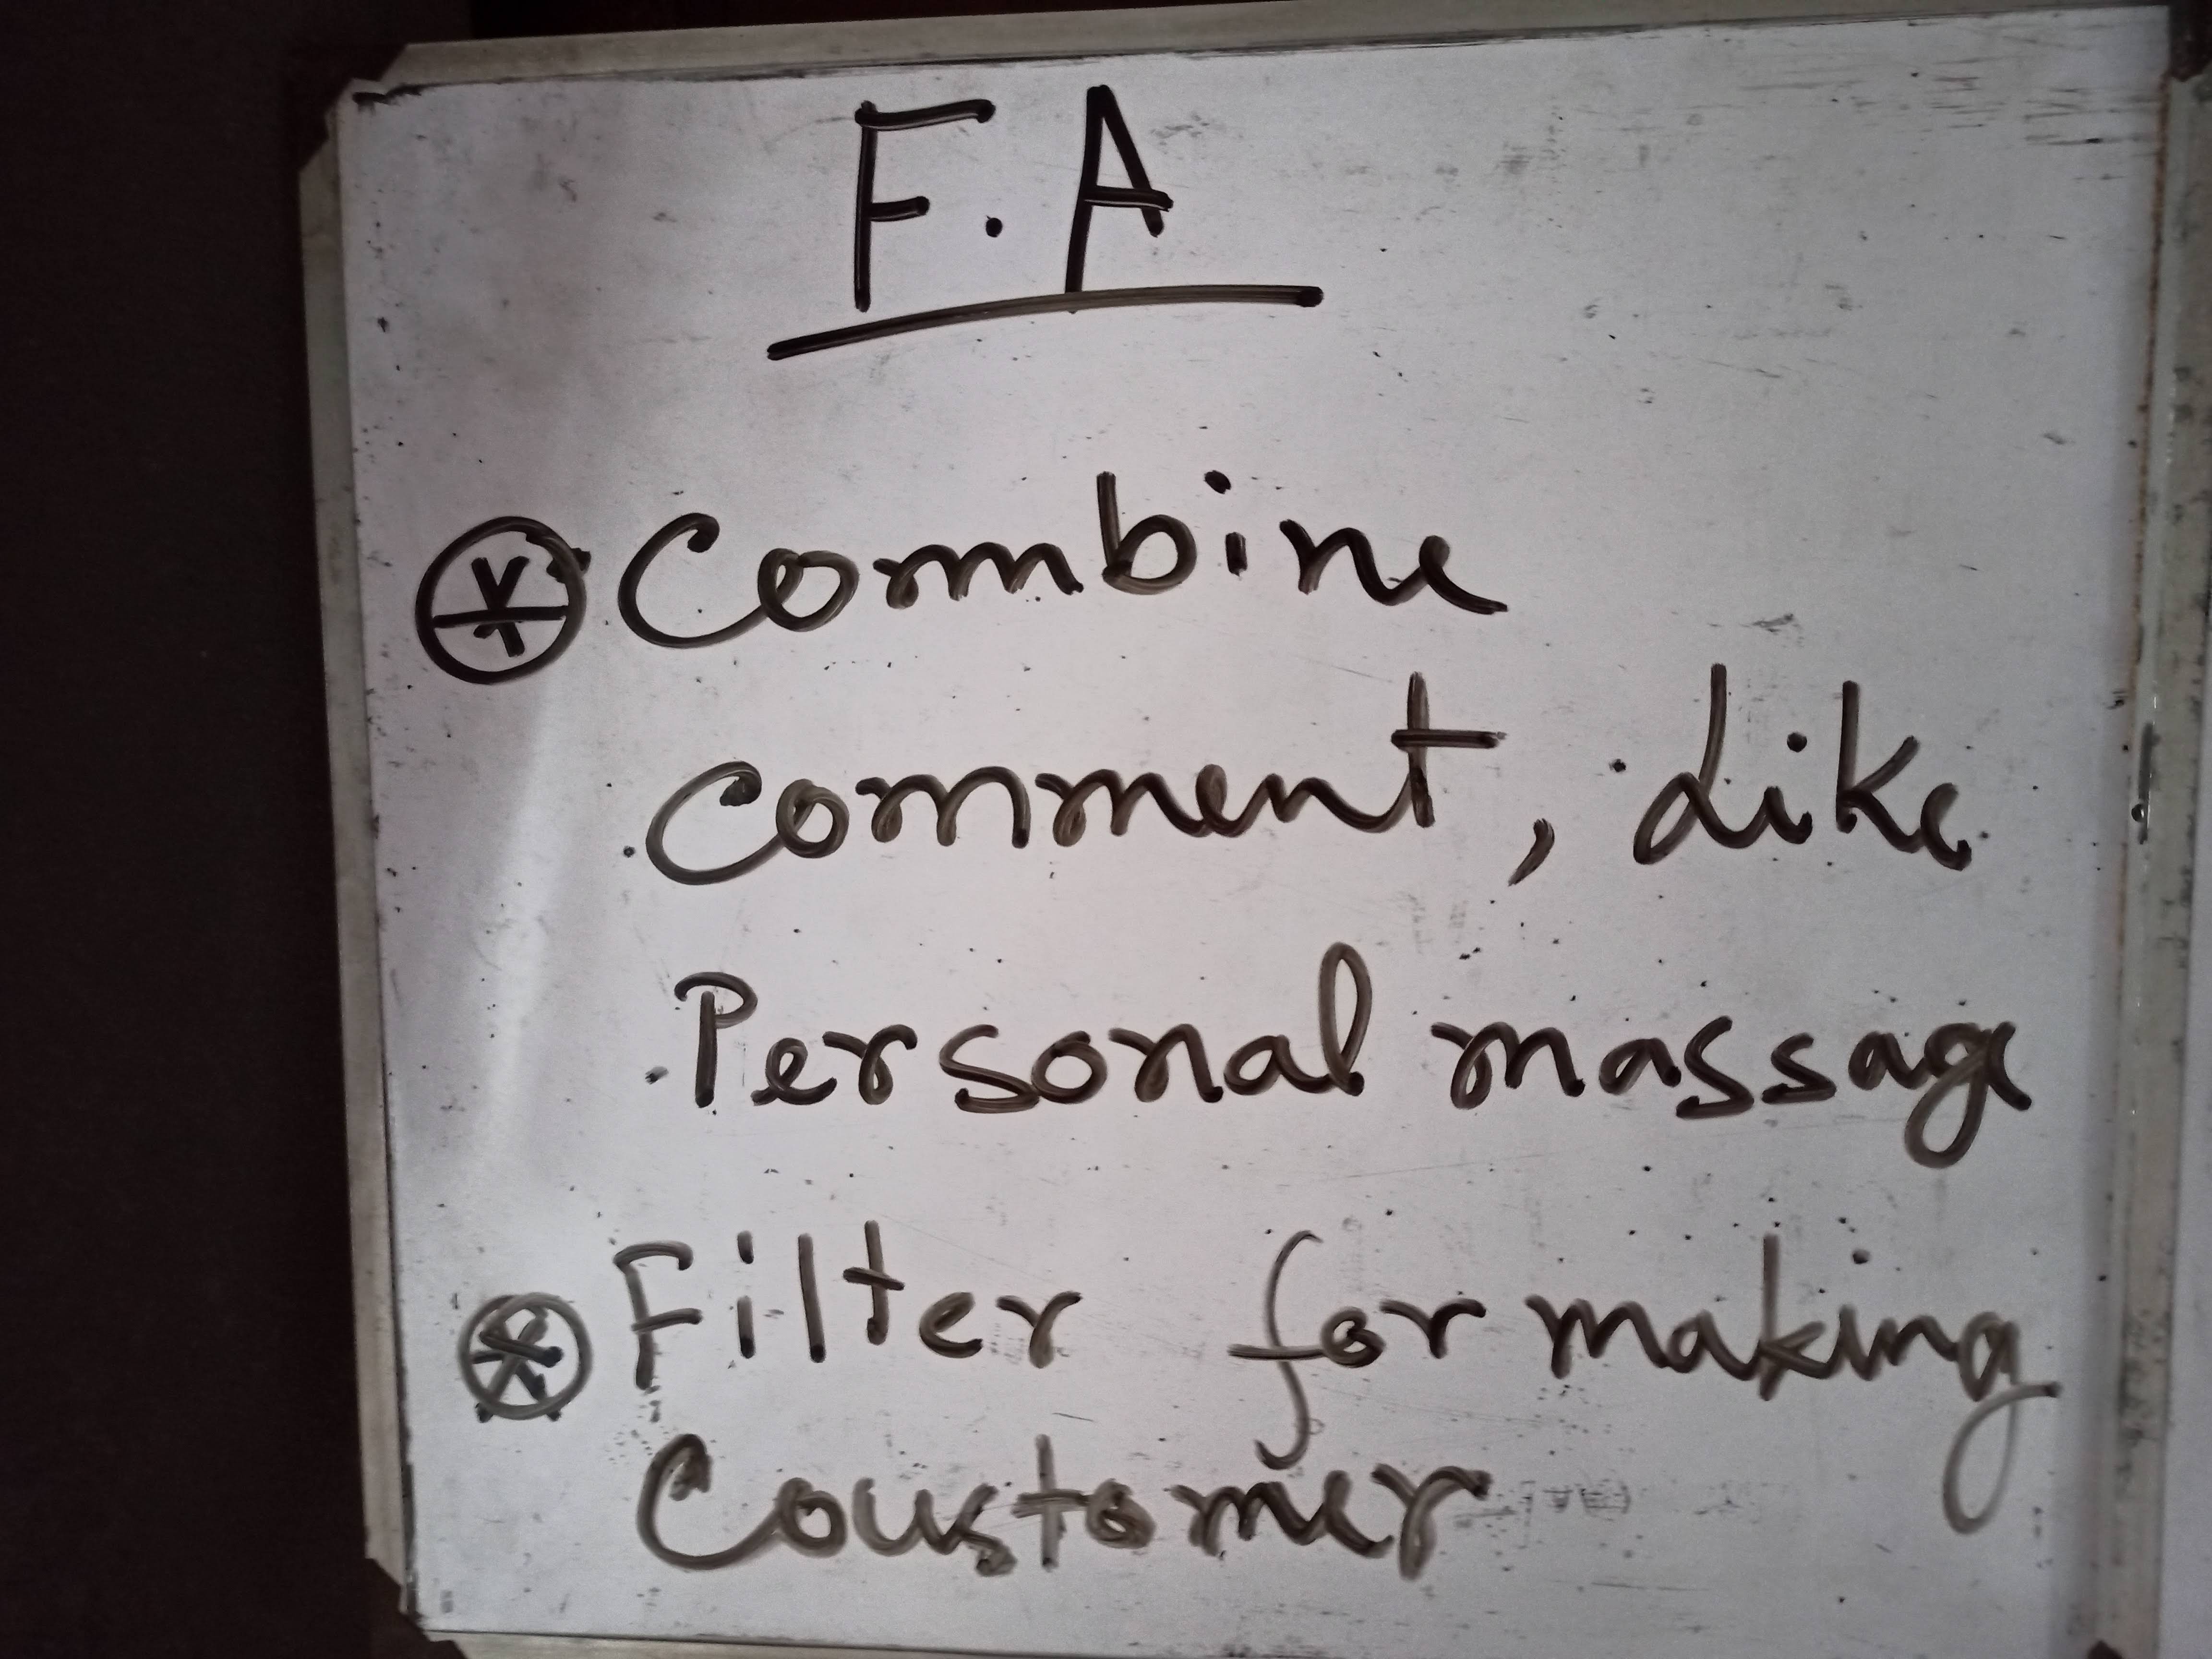 F.A
Combine
Comment, Like
Personal massage
Filter for making
Coustomer